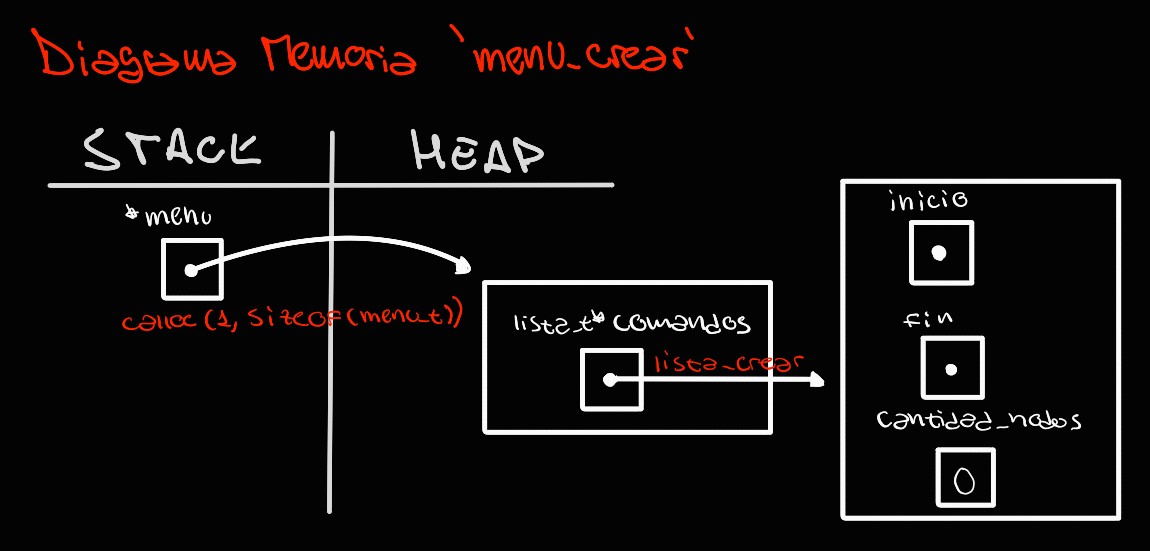 Diagrama Memoria 'menu_crear'
STACK HEAP
*menu
calloc(1, sizeof(menu_t))
lista_t* comandos
lista_crear
inicio
fin
cantidad_nodos
0